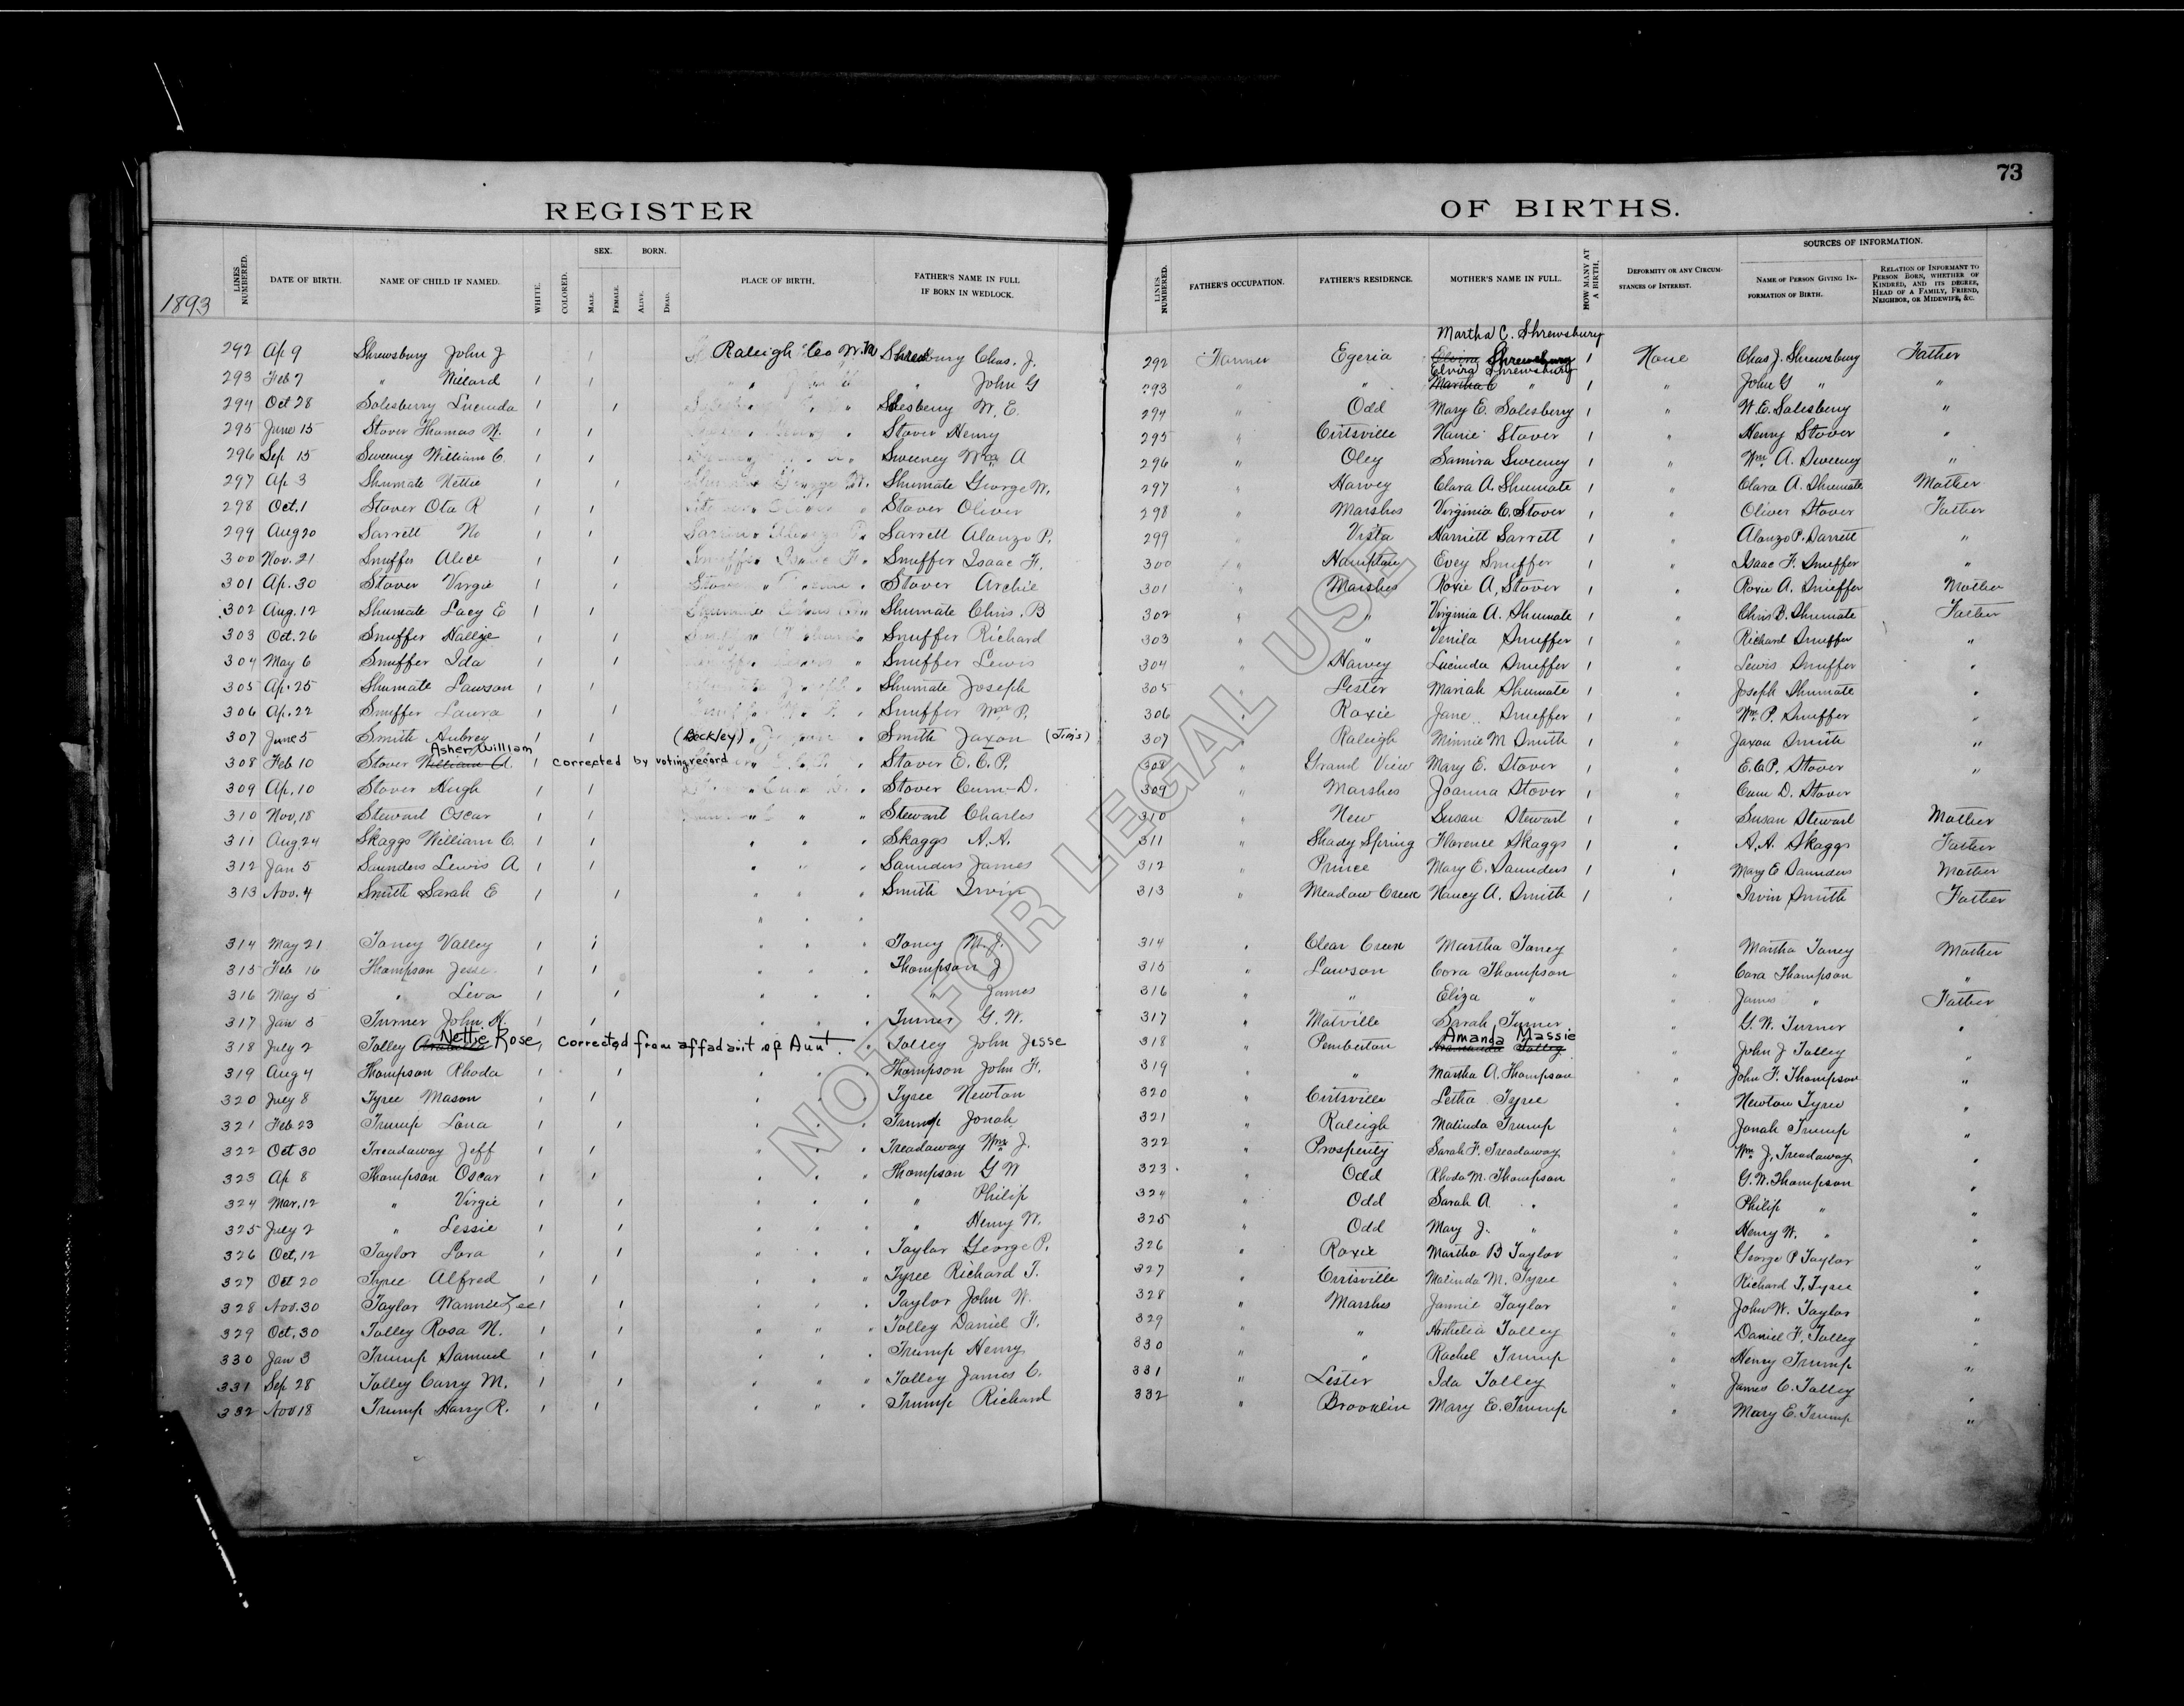 73
REGISTER OF BIRTHS.
1893
LINES NUMBERED. DATE OF BIRTH. NAME OF CHILD IF NAMED. WHITE. COLORED. SEX. MALE. FEMALE. BORN. ALIVE. DEAD. PLACE OF BIRTH. FATHER'S NAME IN FULL IF BORN IN WEDLOCK. LINES NUMBERED. FATHER'S OCCUPATION. FATHER'S RESIDENCE. MOTHER'S NAME IN FULL. HOW MANY AT A BIRTH. DEFORMITY OR ANY CIRCUMSTANCES OF INTEREST. SOURCES OF INFORMATION. NAME OF PERSON GIVING INFORMATION OF BIRTH. RELATION OF INFORMANT TO PERSON BORN, WHETHER OF KINDRED, AND ITS DEGREE, HEAD OF A FAMILY, FRIEND, NEIGHBOR, OR MIDWIFE, &C.
Martha C. Shrewsbury
292 Ap 9 Shrewsbury John J 1 Raleigh Co W.Va Shrewsbury Chas. J. 292 Farmer Egeria Elvira Shrewsbury 1 None Chas J. Shrewsbury Father
Elvira Shrewsbury
293 Feb 7 " Millard 1 1 " John G 293 " " Martha C " 1 " John G " "
294 Oct 28 Solesberry Lucinda 1 1 " Solesberry W. E. 294 " Odd Mary E. Solesberry 1 " W. E. Solesberry "
295 June 15 Stover Thomas 1 1 " Stover Henry 295 " Cirtsville Nannie Stover 1 " Henry Stover "
296 Sep 15 Sweeney William C. 1 1 " Sweeney Wm A 296 " Oley Samira Sweeney 1 " Wm A. Sweeney "
297 Ap 3 Shumate Nettie 1 1 " Shumate George W. 297 " Harvey Clara A. Shumate 1 " Clara A. Shumate Mother
298 Oct. 1 Stover Ota R 1 1 " Stover Oliver 298 " Marshes Virginia C. Stover 1 " Oliver Stover Father
299 Aug 20 Sarrett No 1 1 " Sarrett Alonzo P. 299 " Vista Harriett Sarrett 1 " Alonzo P. Sarrett "
300 Nov. 21 Snuffer Alice 1 1 " Snuffer Isaac F. 300 " Evey Snuffer 1 " Isaac F. Snuffer "
301 Ap. 30 Stover Virgie 1 1 " Stover Archie 301 " Marshes Roxie A. Stover 1 " Roxie A. Snuffer Mother
302 Aug. 12 Shumate Lacy E 1 1 " Shumate Chris. B 302 " " Virginia A. Shumate 1 " Chris B. Shumate Father
303 Oct. 26 Snuffer Hallie 1 1 " Snuffer Richard 303 " " Venila Snuffer 1 " Richard Snuffer "
304 May 6 Snuffer Ida 1 1 " Snuffer Lewis 304 " Harvey Lucinda Snuffer 1 " Lewis Snuffer "
305 Ap. 25 Shumate Lawson 1 1 " Shumate Joseph 305 " Lester Mariah Shumate 1 " Joseph Shumate "
306 Ap. 22 Snuffer Laura 1 1 " Snuffer Wm P. 306 " Roxie Jane Snuffer 1 " Wm. P. Snuffer "
307 June 5 Smith Aubrey 1 1 (Beckley) " Smith Jaxon (Jim's) 307 " Raleigh Minnie M Smith 1 " Jaxon Smith "
Asher William
308 Feb 10 Stover William A. 1 corrected by voting record Stover E. C. P. 308 " Grand View Mary E. Stover 1 " E. C. P. Stover "
309 Ap. 10 Stover Hugh 1 1 " Stover Cum. D. 309 " Marshes Joanna Stover 1 " Cum D. Stover
310 Nov, 18 Stewart Oscar 1 1 " " Stewart Charles 310 " New Susan Stewart 1 " Susan Stewart Mother
311 Aug. 24 Skaggs William C. 1 1 " " " Skaggs A. A. 311 " Shady Spring Florence Skaggs 1 " A. A. Skaggs Father
312 Jan 5 Saunders Lewis A 1 1 " " " Saunders James 312 " Prince Mary E. Saunders 1 " Mary E Saunders Mother
313 Nov. 4 Smith Sarah E 1 1 " " " Smith Irvin 313 " Meadow Creek Nancy A. Smith 1 " Irvin Smith Father
" " "
314 May 21 Toney Valley 1 1 " " " Toney 314 " Clear Creek Martha Toney " Martha Toney Mother
315 Feb 16 Thompson Jesse 1 1 " " " Thompson J 315 " Lawson Cora Thompson " Cora Thompson "
316 May 5 " Leva 1 1 " " " " James 316 " " Eliza " " James " Father
317 Jan 5 Turner John H. 1 1 " " " Turner G. W. 317 " Matville Sarah Turner " G. W. Turner "
Nettie Rose Amanda Massie
318 July 2 Tolley 1 corrected from affadavit of Aunt. " Tolley John Jesse 318 " Pemberton Tolley " John J Tolley "
319 Aug 4 Thompson Rhoda 1 1 " " " Thompson John F. 319 " " Martha A. Thompson " John F. Thompson "
320 July 8 Tyree Mason 1 1 " " " Tyree Newton 320 " Cirtsville Letha Tyree " Newton Tyree "
321 Feb 23 Trump Lona 1 1 " " " Trump Jonah 321 " Raleigh Malinda Trump " Jonah Trump "
322 Oct 30 Treadaway Jeff 1 1 " " " Treadaway Wm J. 322 " Prosperity Sarah F. Treadaway " Wm J. Treadaway "
323 Ap 8 Thompson Oscar 1 1 " " " Thompson G W 323 " Odd Rhoda M. Thompson " G. W. Thompson "
324 Mar. 12 " Virgie 1 1 " " " " Philip 324 " Odd Sarah A. " " Philip " "
325 July 2 " Lessie 1 1 " " " " Henry W. 325 " Odd Mary J. " " Henry W. " "
326 Oct, 12 Taylor Lora 1 1 " " " Taylor George P. 326 " Roxie Martha B Taylor " George P Taylor "
327 Oct 20 Tyree Alfred 1 1 " " " Tyree Richard T. 327 " Cirtsville Malinda M. Tyree " Richard T. Tyree "
328 Nov. 30 Taylor Wannie Lee 1 1 " " " Taylor John W. 328 " Marshes Jannie Taylor " John W. Taylor "
329 Oct, 30 Tolley Rosa N. 1 1 " " " Tolley Daniel F. 329 " " Tolley " Daniel F. Tolley "
330 Jan 3 Trump Samuel 1 1 " " " Trump Henry 330 " " Rachel Trump " Henry Trump "
331 Sep 28 Tolley Carry M. 1 1 " " " Tolley James C. 331 " Lester Ida Tolley " James C. Tolley "
332 Nov 18 Trump Harry R. 1 1 " " " Trump Richard 332 " Brooklin Mary E. Trump " Mary E. Trump "
NOT FOR LEGAL USE